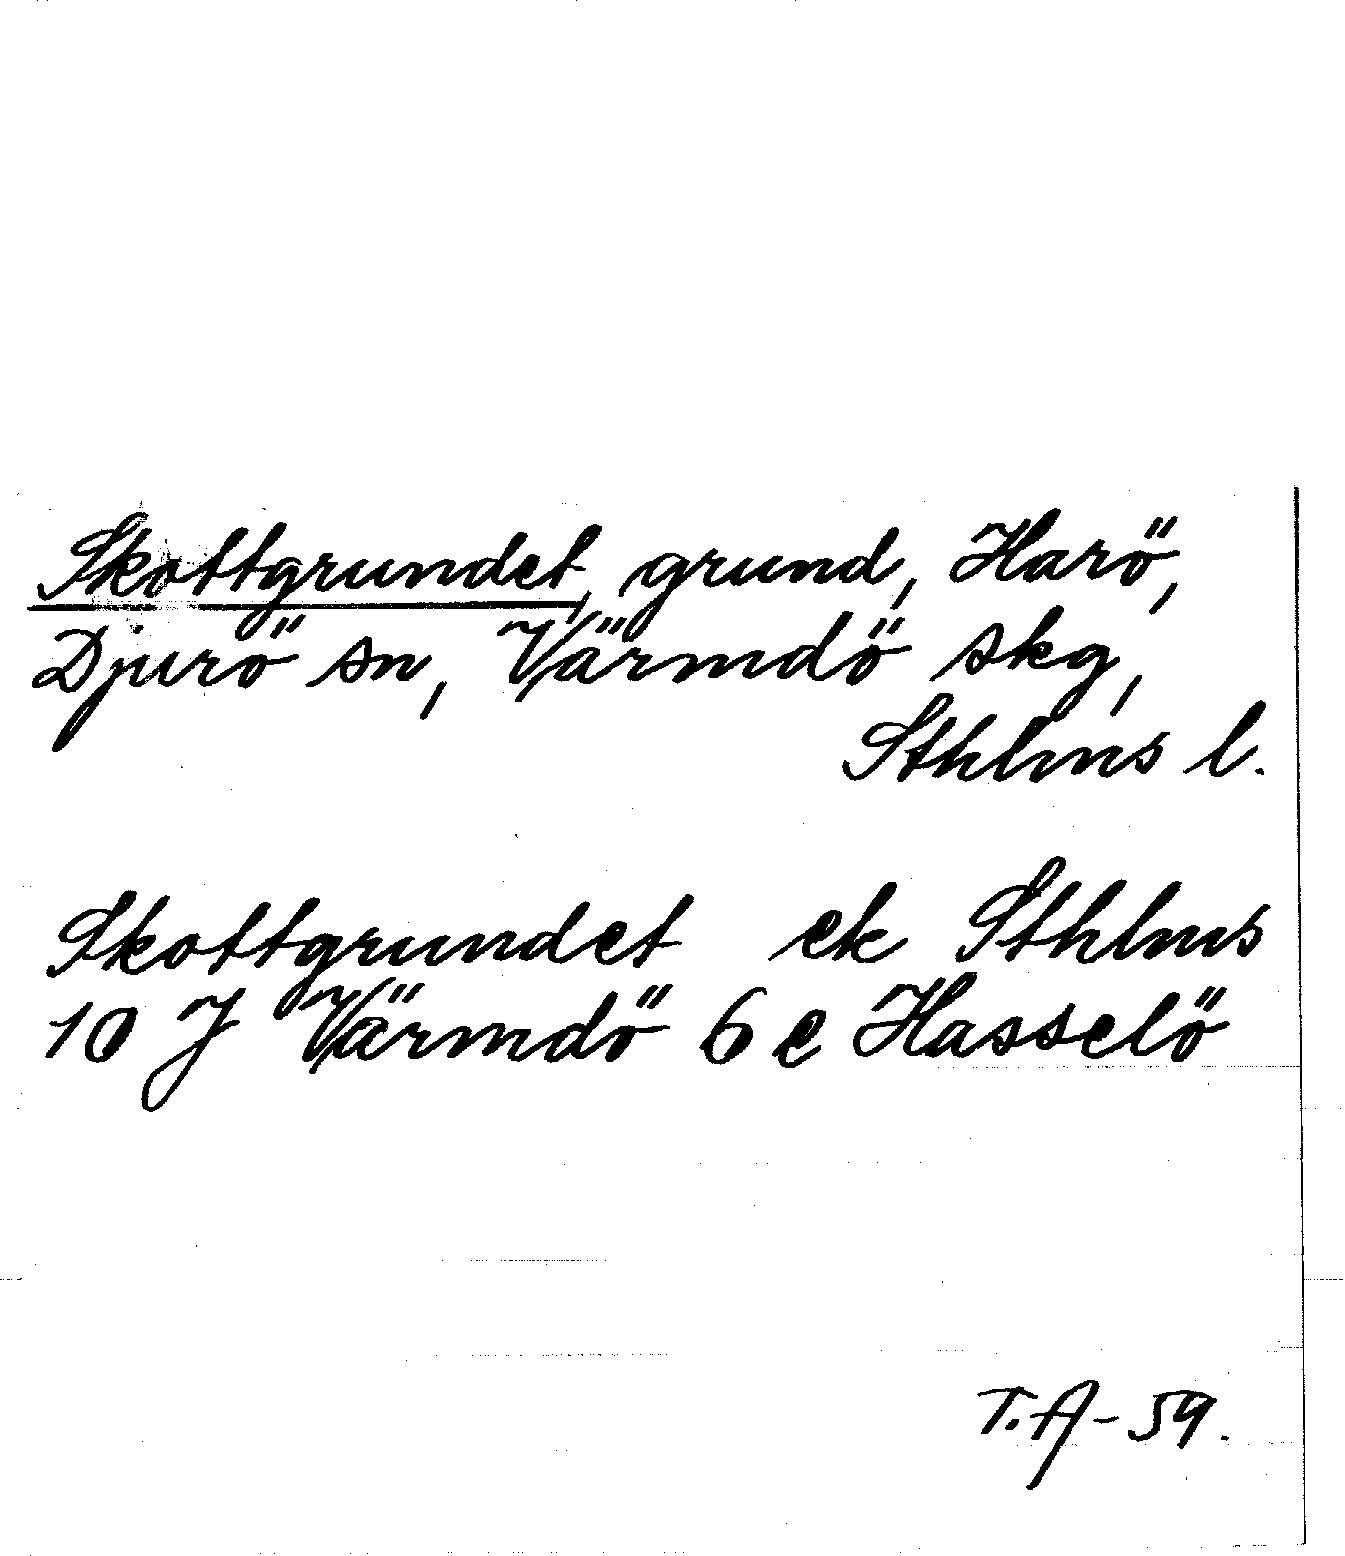 Skottgrundet, grund, Harö,
Djurö sn, Värmdö skg,
Sthlms l.
Skottgrundet ek Sthlms
10 J Värmdö 6 e Hasselö
T.A-59.